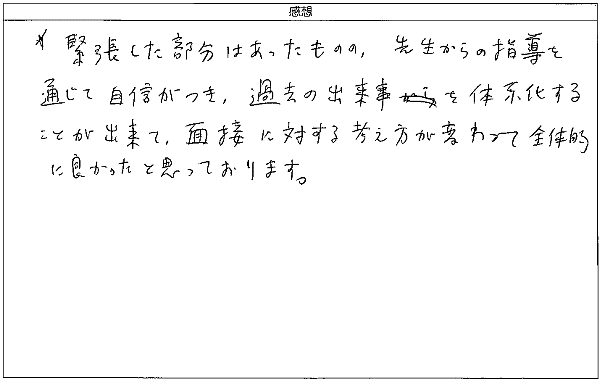 感想
* 緊張した部分はあったものの、先生からの指導を
通じて自信がつき、過去の出来事を体系化する
ことが出来て、面接に対する考え方が変わって全体的
に良かったと思っております。